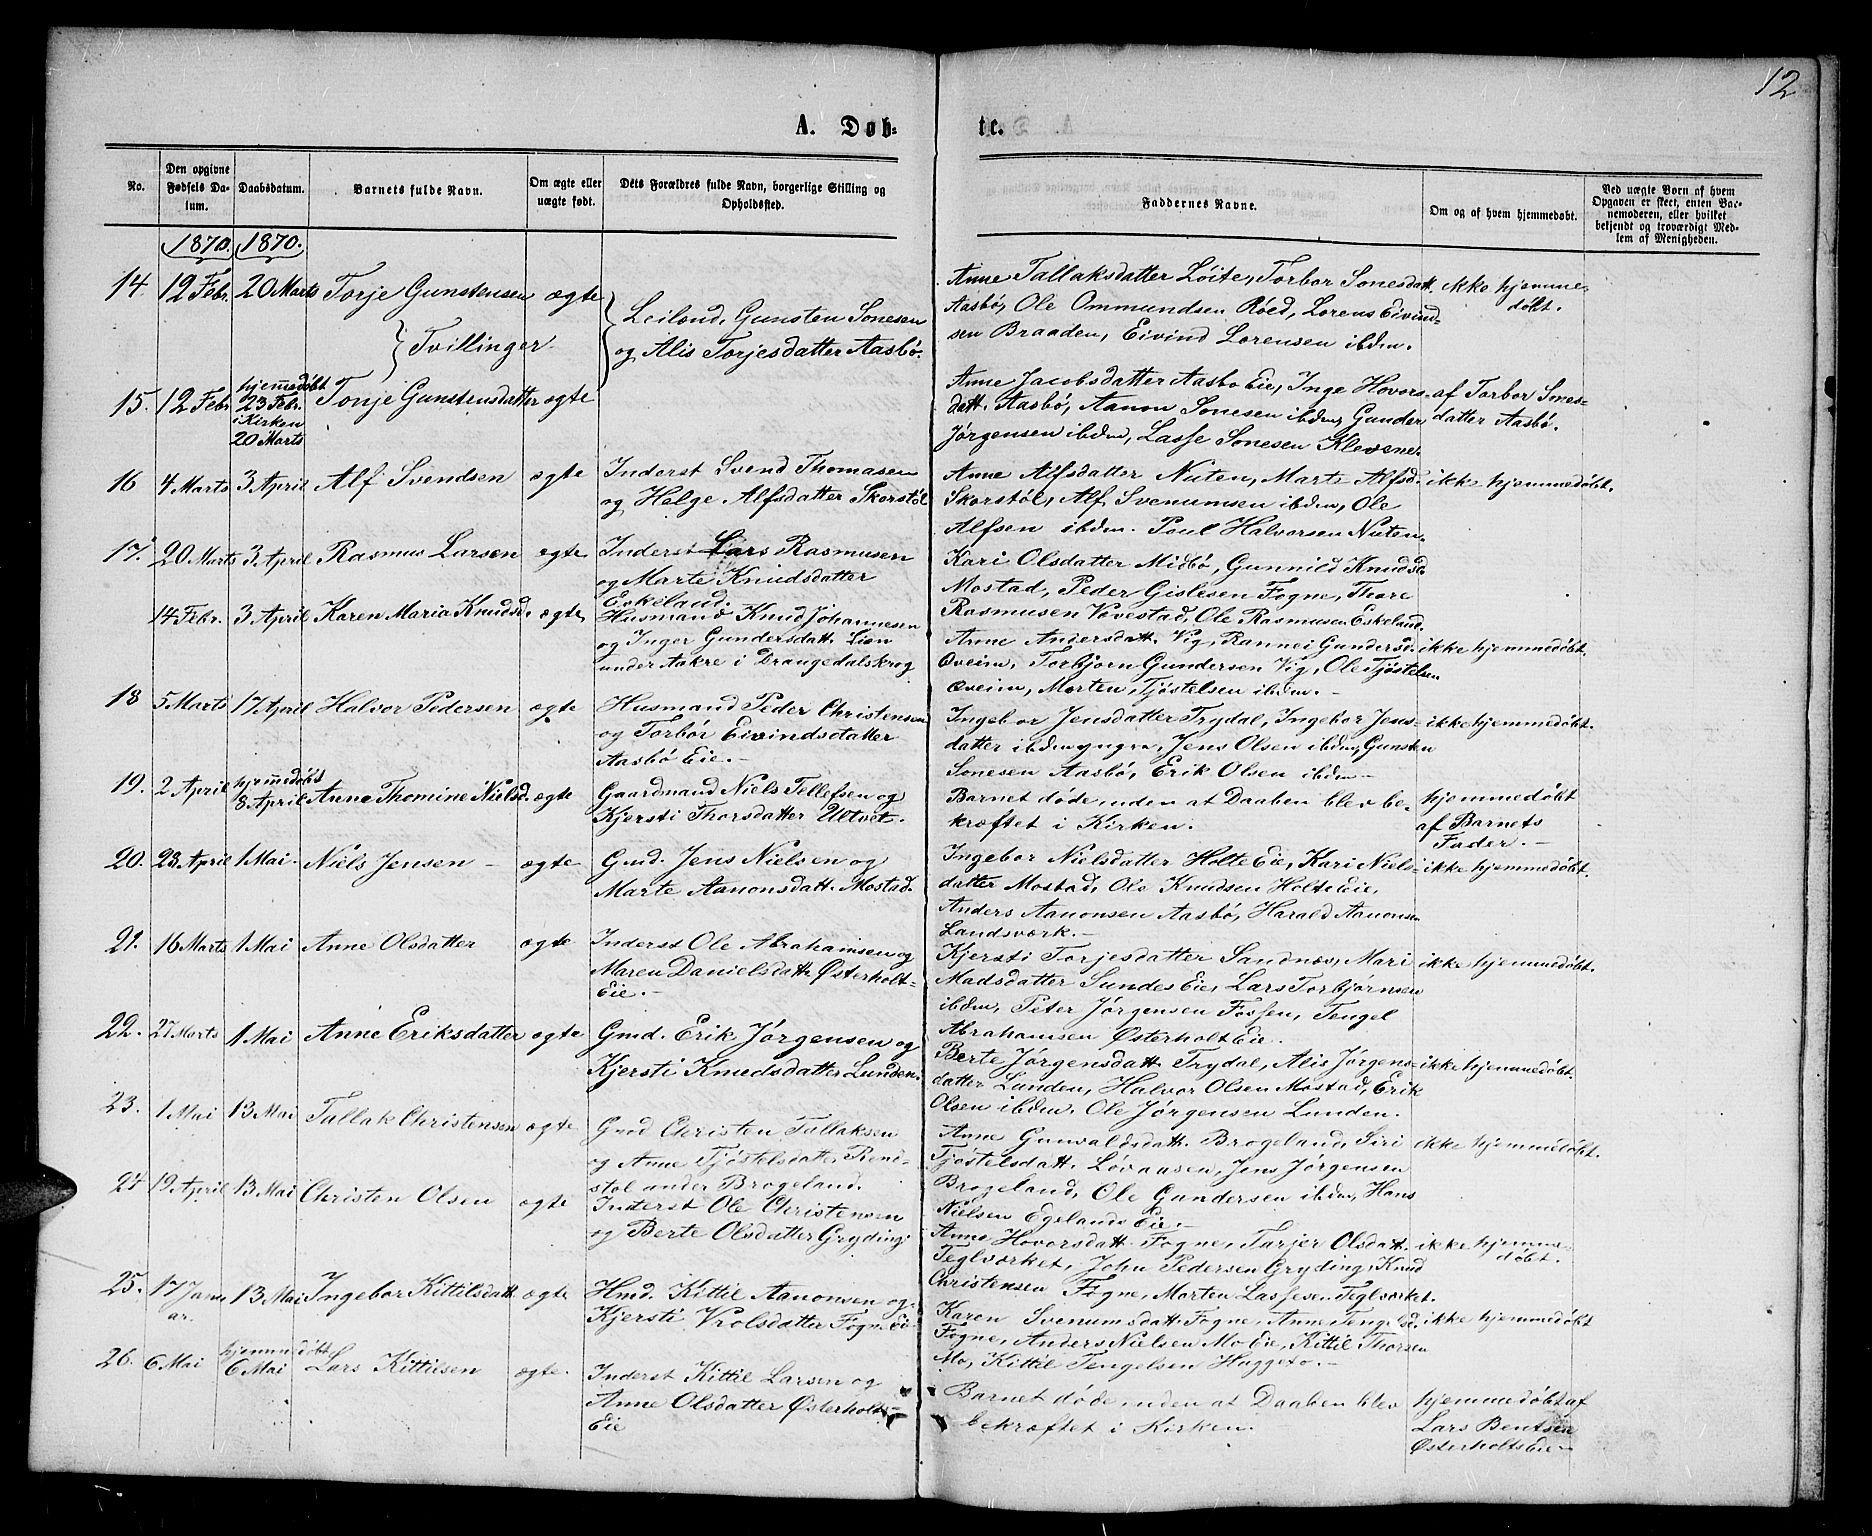 12
A. Døb- te.
No.
Den opgivne Fødsels Datum.
Daabsdatum.
Barnets fulde Navn.
Om ægte eller uægte født.
Dets Forældres fulde Navn, borgerlige Stilling og Opholdssted.
Faddernes Navne.
Om og af hvem hjemmedøbt.
Ved uægte Børn af hvem Opgaven er skeet, enten Barnemoderen, eller hvilket bekjendt og troværdigt Medlem af Menigheden.
1870. 1870.
14. 12 Febr. 20 Marts Torje Gunstensen ægte
Leilænd. Gunsten Sonesen
og Alis Torjesdatter Aasbø.
Tvillinger
Anne Tallaksdatter Løite, Torbor Sonesdatt.
Aasbø, Ole Ommundsen Røed, Lorens Eivind-
sen Braaden, Eivind Lorensen ibdm.
ikke hjemme-
døbt.
15. 12 Febr. hjemmedøbt
23 Febr.
i Kirken
20 Marts
Tonje Gunstensdatter ægte
Anne Jacobsdatter Aasbø Eie, Inge Hovors-
datt. Aasbø, Aanon Sonesen ibdm, Gunder
Jørgensen ibdm, Lasse Sonesen Klevene.
af Torbor Sones-
datter Aasbø.
16 4 Marts 3 April Alf Svendsen ægte
Inderst Svend Thomasen
og Helge Alfsdatter Skorstøl
Anne Alfsdatter Nuten, Marte Alfsd.
Skorstøl, Alf Svenumsen ibdm, Ole
Alfsen ibdm. Poul Halvorsen Nuten.
ikke hjemmedøbt.
17. 20 Marts 3 April Rasmus Larsen ægte
Inderst Lars Rasmusen
og Marte Knudsdatter
Eskeland.
Kari Olsdatter Midbø, Gunnild Knudsd.
Mostad, Peder Gislesen Fogne, Thore
Rasmusen Vovestad, Ole Rasmusen Eskeland.
14 Febr. 3 April Karen Maria Knudsd. ægte
Husmand Knud Johannesen
og Inger Gundersdatt. Lien
under Aakre i Drangedalskrog
Anne Andersdatt. Vig, Rannei Gundersd.
Øveim, Torbjørn Gundersen Vig, Ole Tjøstelsen
Øveim, Morten Tjøstelsen ibdm.-
ikke hjemmedøbt.
18 5 Marts 17 April Halvor Pedersen ægte
Husmand Peder Christensen
og Torbor Eivindsdatter
Aasbø Eie.-
Ingebor Jensdatter Trydal, Ingebor Jens-
datter ibdm yngre, Jens Olsen ibdm, Gunsten
Sonesen Aasbø, Erik Olsen ibdm-
ikke hjemmedøbt.
19. 2 April hjemmedøbt
8 April Anne Thomine Nielsd. ægte
Gaardmand Niels Tellefsen og
Kjersti Thorsdatter Ultvet.
Barnet døde, uden at Daaben blev be-
kræftet i Kirken.
hjemmedøbt
af Barnets
Fader.-
20. 23 April 1 Mai. Niels Jensen - ægte
Gmd. Jens Nielsen og
Marte Aanonsdatt. Mostad.
Ingebor Nielsdatter Holte Eie, Kari Niels-
datter Mostad, Ole Knudsen Holte Eie,
Anders Aanonsen Aasbø, Harald Aanonsen
Landsværk.-
ikke hjemmedøbt.
21. 16 Marts 1 Mai Anne Olsdatter ægte
Inderst Ole Abrahamsen og
Maren Danielsdatt. Østerholt-
Eie.-
Kjersti Torjesdatter Sandnæs, Mari
Madsdatter Sundes Eie, Lars Torbjørnsen
ibdm, Peter Jørgensen Fossen, Tengel
Abrahamsen Østerholt Eie.
ikke hjemmedøbt.
22. 27 Marts 1 Mai Anne Eriksdatter ægte
Gmd. Erik Jørgensen og
Kjersti Knudsdatter Lunden.
Berte Jørgensdatt. Trydal, Alis Jørgens-
datter Lunden, Halvor Olsen Mostad, Erik
Olsen ibdm. Ole Jørgensen Lunden.
ikke hjemmedøbt.
23. 1 Mai 13 Mai Tallak Christensen ægte
Gmd Christen Tallaksen
og Anne Tjøstelsdatt. Rend-
støl under Brogeland.
Anne Gunvaldsdatt. Brogeland, Siri
Tjøstelsdatt. Løvaasen, Jens Jørgensen
Brogeland, Ole Gundersen ibdm, Hans
Nielsen Egelands Eie.-
ikke hjemmedøbt.
24 19 April 13 Mai Christen Olsen ægte
Inderst Ole Christensen
og Berte Olsdatter Gryding.
Anne Hovorsdatt. Fogne, Tarjer Olsdatt.
Teglværket, John Pedersen Gryding, Knud
Christensen Fogne, Morten Lassesen Teglværket.
ikke hjemme-
døbt.
25. 17 Janu
ar. 13 Mai Ingebor Kittilsdatt. ægte
Hmd. Kittil Aanonsen og
Kjersti Vrolsdatter Fogne Eie
Karen Svenumsdatt. Fogne, Anne Tengelsd.
Fogne, Anders Nielsen Mo Eie, Kittil Thorsen
Mo, Kittil Tengelsen Huggeto.-
ikke hjemmedøbt
26. 6 Mai hjemmedøbt
6 Mai Lars Kittilsen ægte.
Inderst Kittil Larsen og
Anne Olsdatter Østerholts-
Eie
Barnet døde, uden at Daaben blev
bekræftet i Kirken.
hjemmedøbt af
Lars Bentsen
Østerholts Eie-